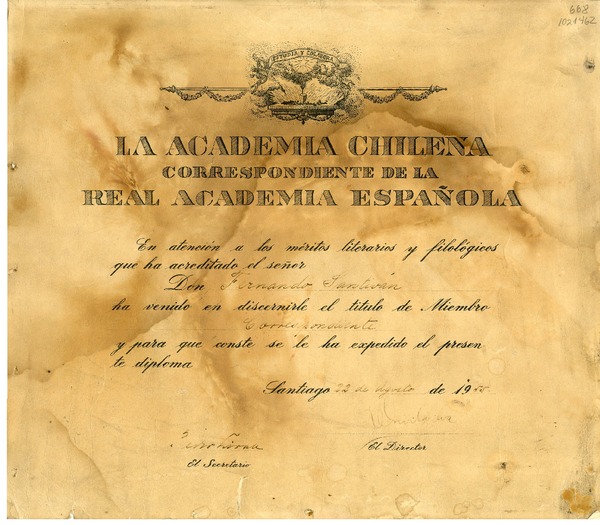 668
1021462
LA ACADEMIA CHILENA
CORRESPONDIENTE DE LA
REAL ACADEMIA ESPAÑOLA
En atención a los méritos literarios y filológicos
que ha acreditado el señor
Don Fernando Santiván
ha venido en discernirle el titulo de Miembro
Correspondiente
y para que conste se le ha expedido el presen
te diploma
Santiago 22 de Agosto de 19
El Director
El Secretario